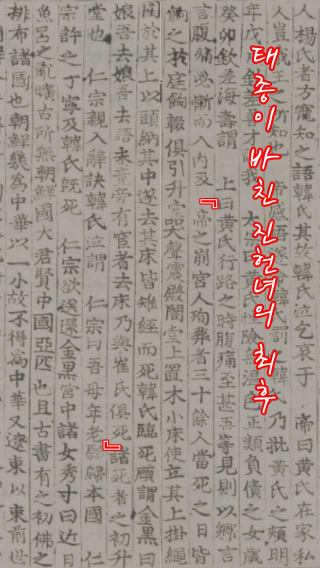 태종이 바친 진헌녀의 최후
人楊氏者方寬知之語韓氏其故韓氏泣乞哀于 帝曰黃氏在家私
人豈我王之所知也 帝感悟遂命韓氏罰之韓氏乃批黃氏之頰明
年戊戌欽差善才謂我 太宗曰黃氏性險無溫色正類負債之女歲
癸卯欽差海壽謂 上曰黃氏行路之時腹痛至甚吾等見則以鄕言
言腹痛必慚而入內及『帝之崩宮人殉葬者三十餘人當死之日皆
餉之於庭餉輟俱引升堂哭聲震殿閣堂上置木小床使立其上掛繩
圍於其上以頭納其中遂去其床皆雉經而死韓氏臨死顧謂金黑曰
娘吾去娘吾去語未竟旁有宦者去床乃與崔氏俱死』諸死者之初升
堂也 仁宗親入辭訣韓氏泣謂 仁宗曰吾母年老願歸本國 仁
宗許之丁寧及韓氏旣死 仁宗欲送還金黑宮中諸女秀才曰近日
魚呂之亂曠古所無朝鮮國大君賢中國亞匹也且古書有之初佛之
排布諸國也朝鮮幾爲中華以一小故不得爲中華又遼東以東前世